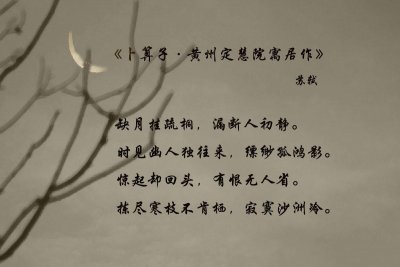 《卜算子·黄州定慧院寓居作》
苏轼
缺月挂疏桐，漏断人初静。
时见幽人独往来，缥缈孤鸿影。
惊起却回头，有恨无人省。
拣尽寒枝不肯栖，寂寞沙洲冷。